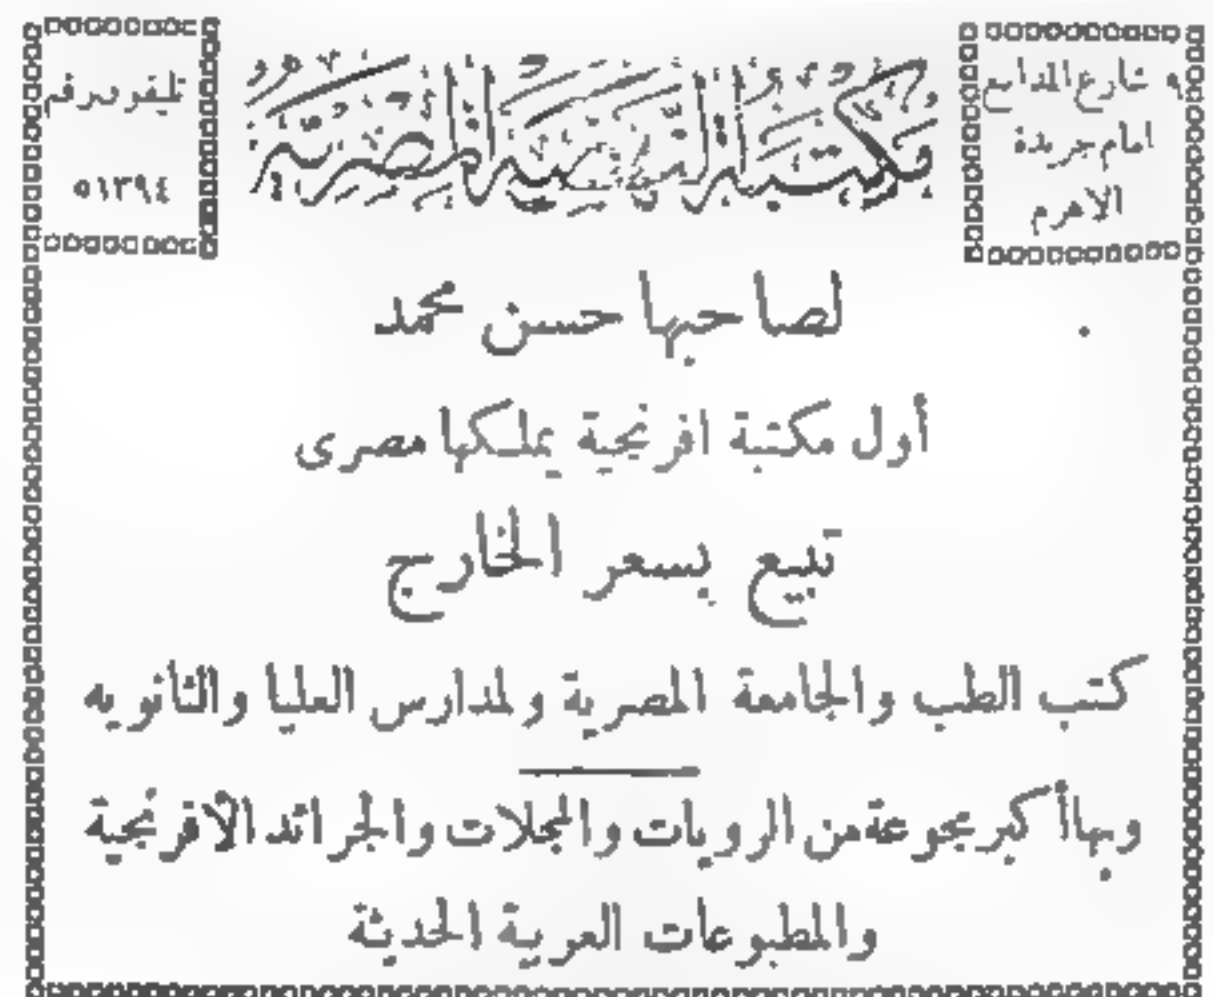 ٩ شارع المدابغ
امام جريدة
الاهرم
مكتبة النهضة المصرية
تليفون رقم
٥١٣٩٤
لصاحبها حسن محمد
أول مكتبة افرنجية يملكها مصرى
تبيع بسعر الخارج
كتب الطب والجامعة المصرية ولمدارس العليا والثانويه
وبها أكبر مجموعة من الرويات والمجلات والجرائد الافرنجية
والمطبوعات العربية الحديثة